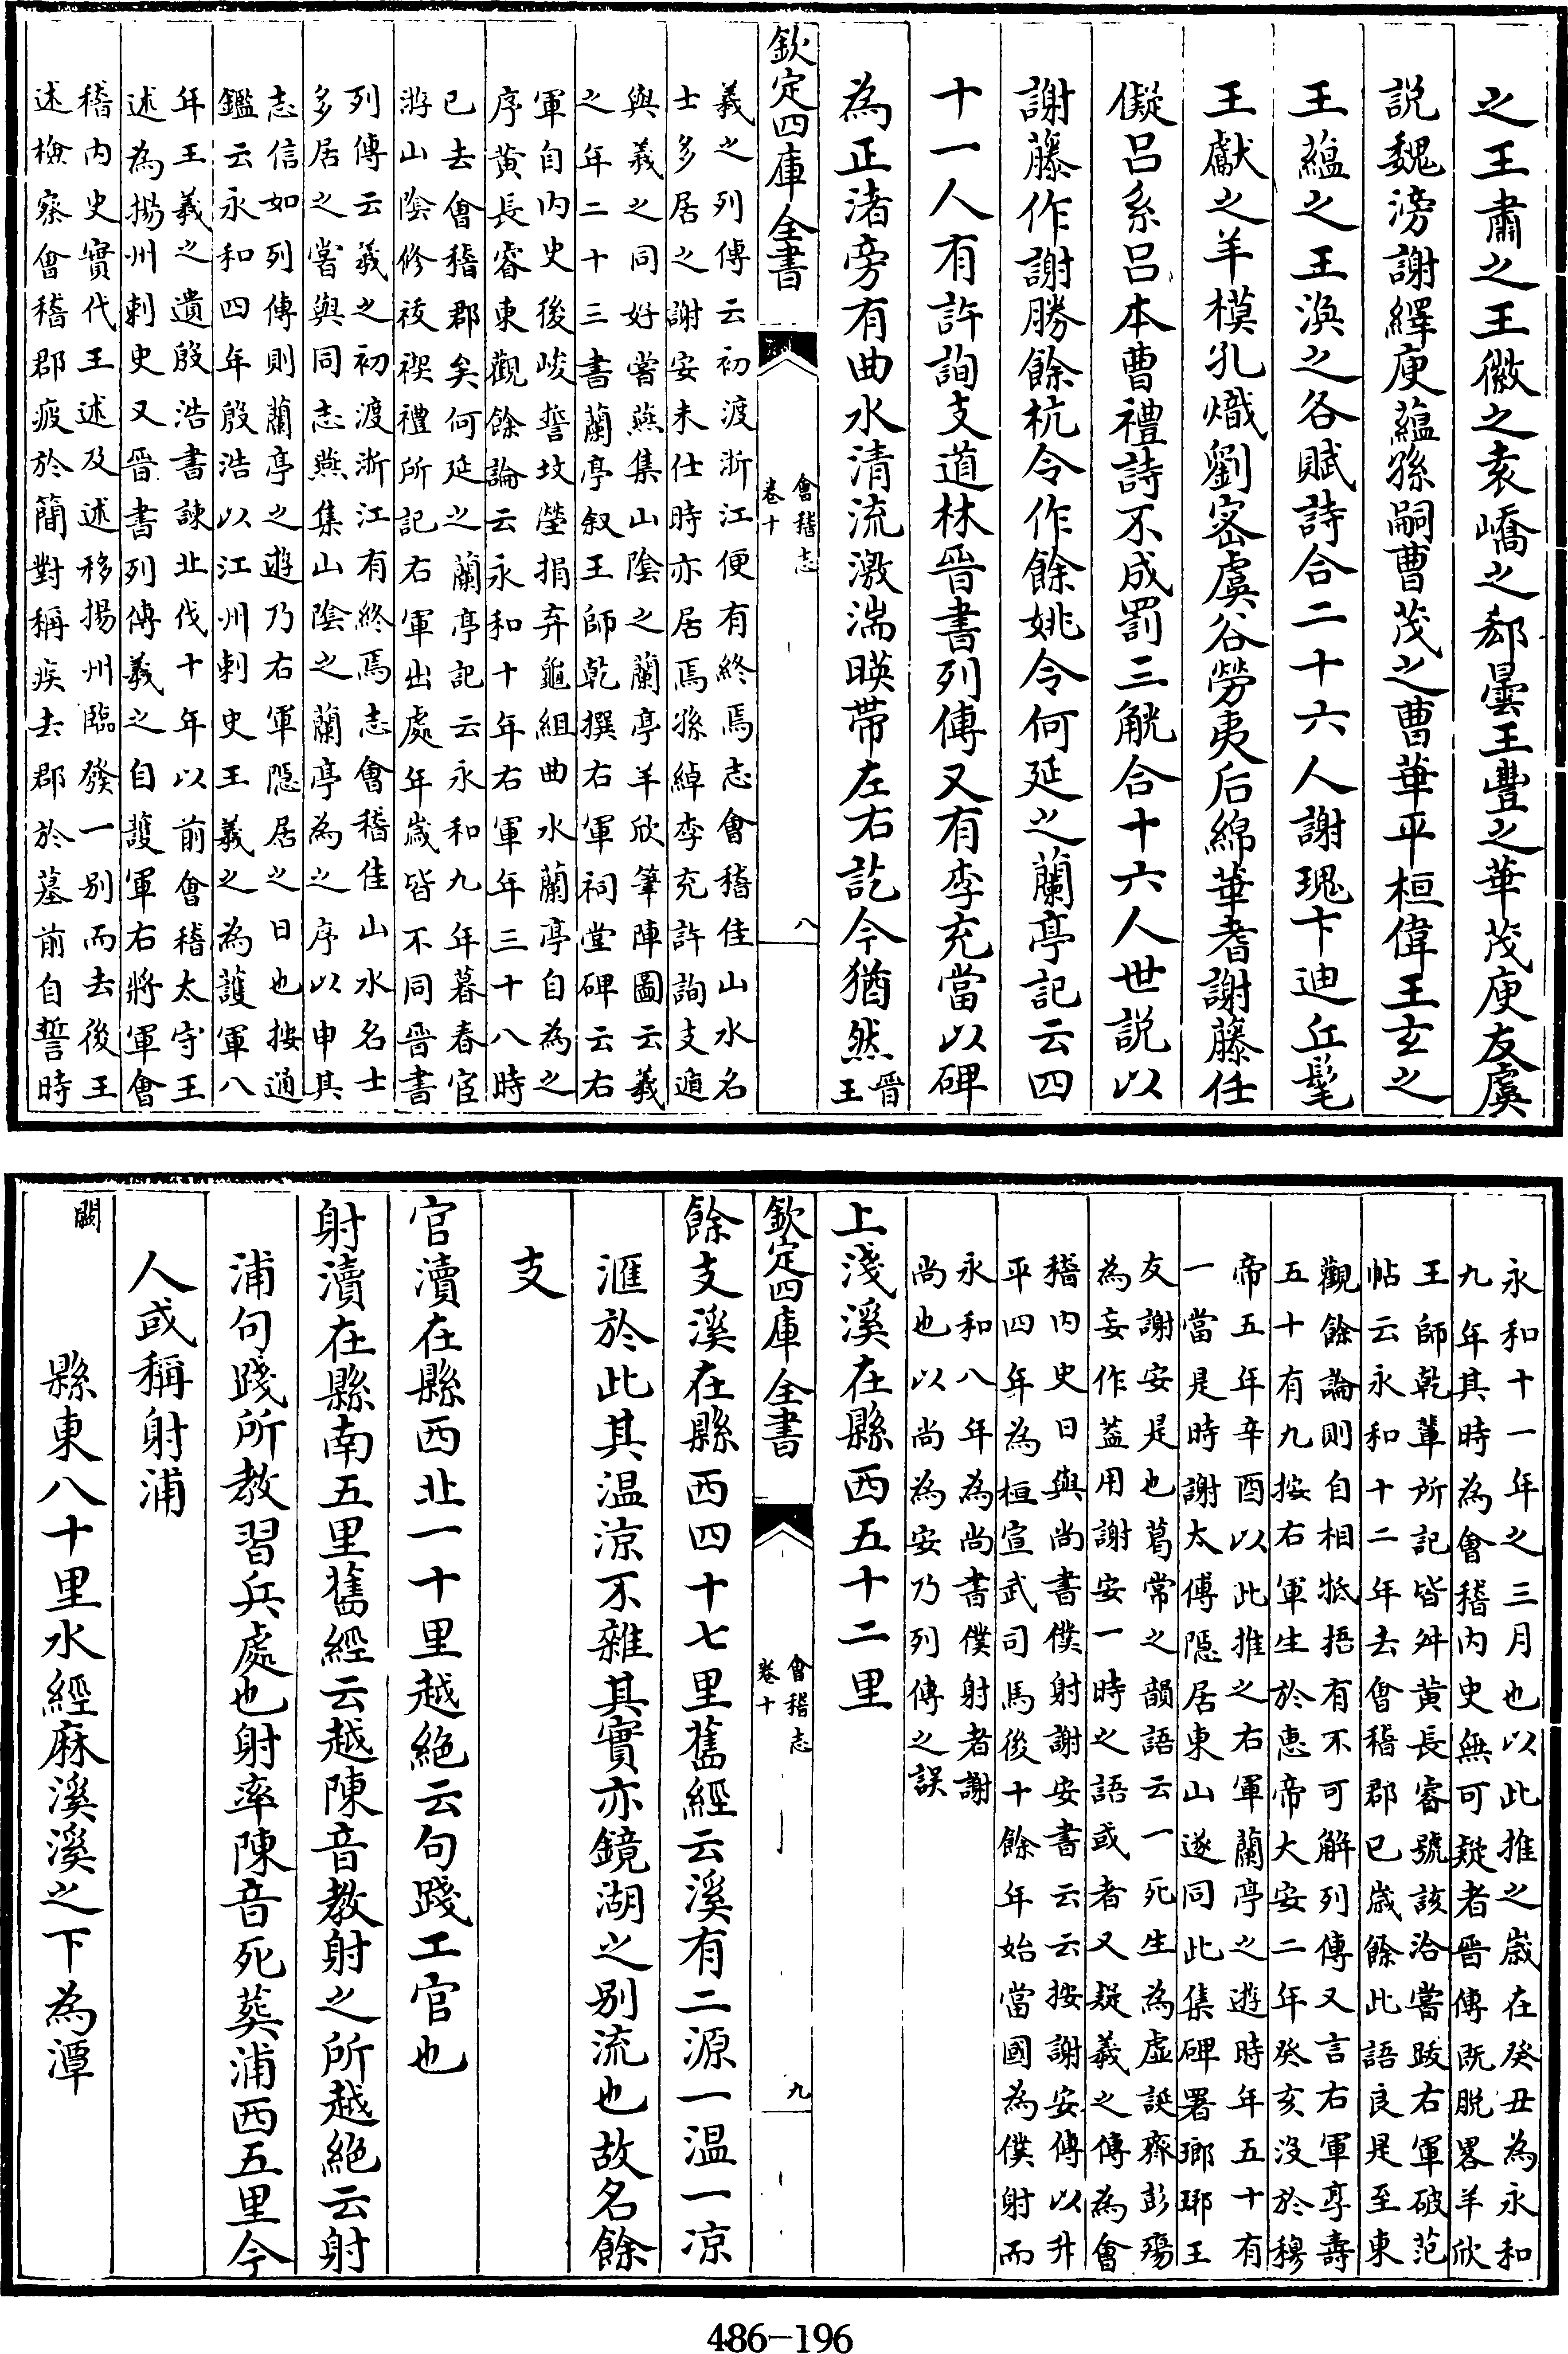 之王肅之王徽之袁嶠之郄曇王豐之華茂庾友虞
説魏滂謝繹庾蘊孫嗣曹茂之曹華平桓偉王玄之
王蘊之王渙之各賦詩合二十六人謝瑰卞迪丘髦
王獻之羊模孔熾劉密虞谷勞夷后綿華耆謝藤任
儗呂系呂本曹禮詩不成罰三觥合十六人世説以
謝藤作謝勝餘杭令作餘姚令何延之蘭亭記云四
十一人有許詢支道林晉書列傳又有李充當以碑
為正渚旁有曲水清流激湍暎帶左右訖今猶然晉
王
義之列傳云初渡浙江便有終焉志會稽佳山水名
士多居之謝安未仕時亦居焉孫綽李充許詢支遁
與義之同好嘗燕集山陰之蘭亭羊欣筆陣圖云義
之年二十三書蘭亭叙王師乾撰右軍祠堂碑云右
軍自内史後峻誓坟塋捐弃龜組曲水蘭亭自為之
序黄長睿東觀餘論云永和十年右軍年三十八時
已去會稽郡矣何延之蘭亭記云永和九年暮春宦
游山陰修祓禊禮所記右軍出處年歲皆不同晉書
列傳云義之初渡浙江有終焉志會稽佳山水名士
多居之嘗與同志燕集山陰之蘭亭為之序以申其
志信如列傳則蘭亭之遊乃右軍隱居之日也按通
鑑云永和四年殷浩以江州刺史王義之為護軍八
年王義之遺殷浩書諫北伐十年以前會稽太守王
述為揚州刺史又晉書列傳義之自護軍右將軍會
稽内史實代王述及述移揚州臨發一别而去後王
述檢察會稽郡疲於簡對稱疾去郡於墓前自誓時
欽定四庫全書
會稽志
卷十
八
永和十一年之三月也以此推之歲在癸丑為永和
九年其時為會稽内史無可疑者晉傳既脱畧羊欣
王師乾輩所記皆舛黄長睿號該洽嘗跋右軍破范
帖云永和十二年去會稽郡已歲餘此語良是至東
觀餘論則自相牴捂有不可解列傳又言右軍享壽
五十有九按右軍生於惠帝大安二年癸亥没於穆
帝五年辛酉以此推之右軍蘭亭之遊時年五十有
一當是時謝太傅隱居東山遂同此集碑署瑯琊王
友謝安是也葛常之韻語云一死生為虚誕齊彭殤
為妄作蓋用謝安一時之語或者又疑義之傳為會
稽内史日與尚書僕射謝安書云云按謝安傳以升
平四年為桓宣武司馬後十餘年始當國為僕射而
永和八年為尚書僕射者謝
尚也以尚為安乃列傳之誤
上淺溪在縣西五十二里
欽定四庫全書
會稽志
卷十
九
餘支溪在縣西四十七里舊經云溪有二源一温一凉
滙於此其温涼不雜其實亦鏡湖之别流也故名餘
支
官瀆在縣西北一十里越絶云句踐工官也
射瀆在縣南五里舊經云越陳音教射之所越絶云射
浦句踐所教習兵處也射率陳音死葬浦西五里今
人或稱射浦
闕
縣東八十里水經麻溪溪之下為潭
486-196